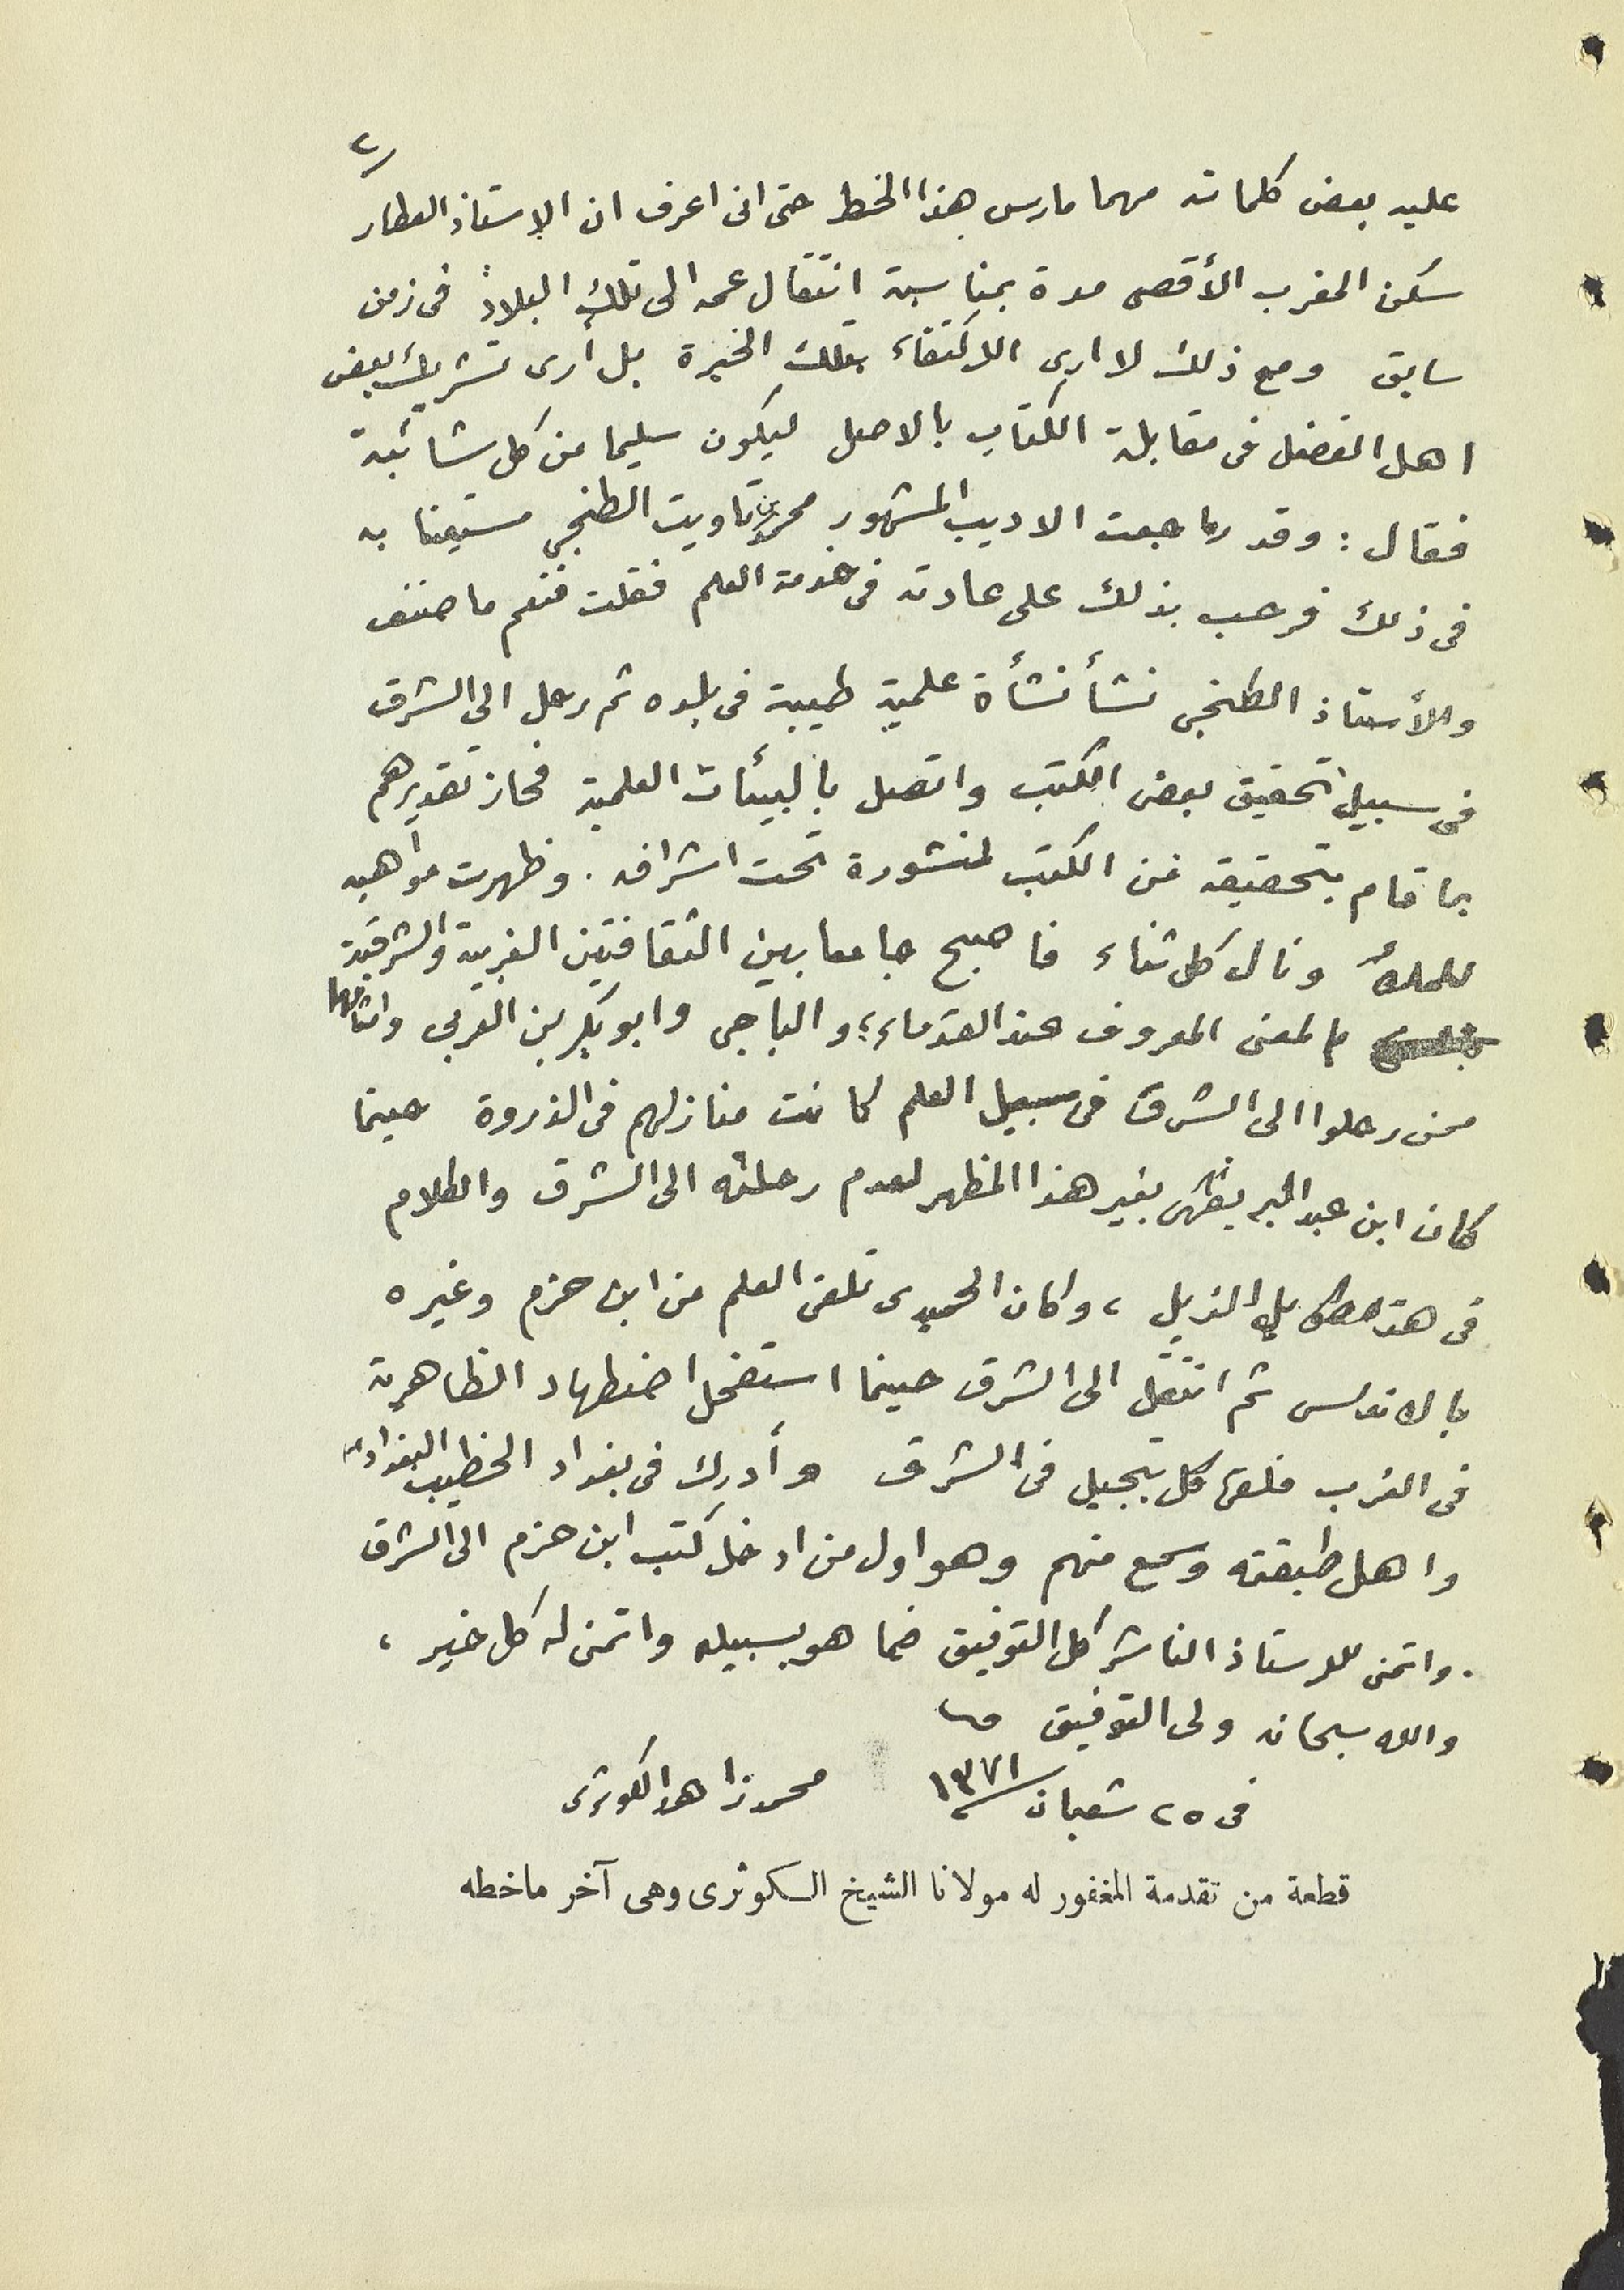 ٢
عليه بعض كلماته مهما مارس هذا الخط حتى انى اعرف ان الاستاذ العطار
سكن المغرب الأقصى مدة بمناسبة انتقال عمه الى تلك البلاد فى زمن
سابق ومع ذلك لا ارى الاكتفاء بتلك الخبرة بل أرى تشريك بعض
اهل الفضل فى مقابلة الكتاب بالاصل ليكون سليما من كل شائبة
فقال : وقد راجعت الاديب المشهور محمد بن تاويت الطنجي مستعينا به
فى ذلك فرحب بذلك على عادته فى خدمة العلم فقلت فنعم ما صنف
والأستاذ الطنجى نشأ نشأة علمية طيبة فى بلده ثم رحل الى الشرق
فى سبيل تحقيق بعض الكتب واتصل بالبيئات العلمية فحاز تقديرهم
بما قام بتحقيقه من الكتب المنشورة تحت اشرافه . وظهرت مواهبه
ونال كل ثناء فاصبح جامعا بين الثقافتين الغربية والشرقية
بالمعنى المعروف عند القدماء ، والباجى وابو بكر بن العربى وامثالهما
ممن رحلوا الى الشرق فى سبيل العلم كانت منازلهم فى الذروة حينما
كان ابن عبد البر يظهر بغير هذا المظهر لعدم رحلته الى الشرق والكلام
فى هذا طويل الذيل ، وكان الحميدى تلقى العلم من ابن حزم وغيره
بالاندلس ثم انتقل الى الشرق حينما استفحل اضطهاد الظاهرية
فى الغرب فلقى كل تبجيل فى الشرق وأدرك فى بغداد الخطيب البغدادى
واهل طبقته وسمع منهم وهو اول من ادخل كتب ابن حزم الى الشرق
. واتمنى للاستاذ الناشر كل التوفيق فيما هو بسبيله واتمنى له كل خير ،
والله سبحانه ولى التوفيق
فى ٢٥ شعبان ١٣٧١ محمد زاهد الكوثرى
قطعة من تقدمة المغفور له مولانا الشيخ الكوثرى وهى آخر ماخطه